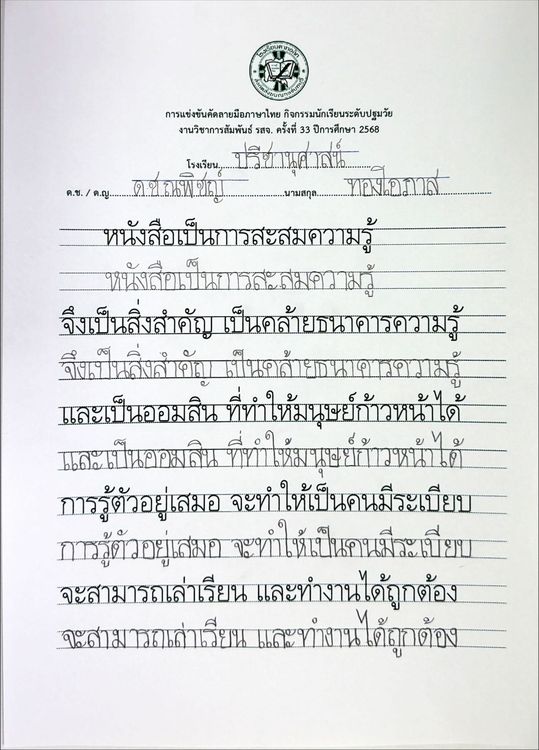 การแข่งขันคัดลายมือภาษาไทย กิจกรรมนักเรียนระดับปฐมวัย
งานวิชาการสัมพันธ์ รสจ. ครั้งที่ 33 ปีการศึกษา 2568
โรงเรียน ปรีชานุศาสน์
ด.ช. / ด.ญ. ด.ช.ณพิชญ์ นามสกุล ทองโอภาส
หนังสือเป็นการสะสมความรู้
หนังสือเป็นการสะสมความรู้
จึงเป็นสิ่งสำคัญ เป็นคล้ายธนาคารความรู้
จึงเป็นสิ่งสำคัญ เป็นคล้ายธนาคารความรู้
และเป็นออมสิน ที่ทำให้มนุษย์ก้าวหน้าได้
และเป็นออมสิน ที่ทำให้มนุษย์ก้าวหน้าได้
การรู้ตัวอยู่เสมอ จะทำให้เป็นคนมีระเบียบ
การรู้ตัวอยู่เสมอ จะทำให้เป็นคนมีระเบียบ
จะสามารถเล่าเรียน และทำงานได้ถูกต้อง
จะสามารถเล่าเรียน และทำงานได้ถูกต้อง